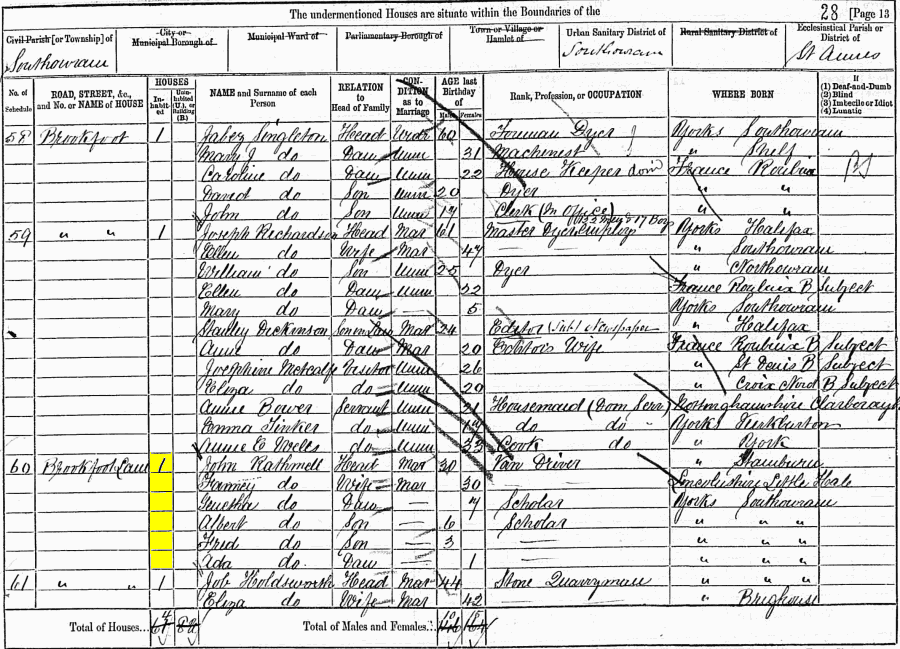 The undermentioned Houses are situate within the Boundaries of the 28 [Page 13
Civil Parish [or Township] of City or Municipal Borough of Municipal Ward of Parliamentary Borough of Town or Village or Hamlet of Urban Sanitary District of Rural Sanitary District of Ecclesiastical Parish or District of
Southowram Southowram St Annes
No. of Schedule ROAD, STREET, &c., and No. or NAME of HOUSE HOUSES Inhabited Uninhabited (U.), or Building (B.) NAME and Surname of each Person RELATION to Head of Family CONDITION as to Marriage AGE last Birthday of Males Females Rank, Profession, or OCCUPATION WHERE BORN If (1) Deaf-and-Dumb (2) Blind (3) Imbecile or Idiot (4) Lunatic
58 Brookfoot 1 Jabez Singleton Head Widr 60 Foreman Dyer Yorks Southowram
Mary J do Daur Unm 31 Machenest " Shelf
Caroline do Daur Unm 22 House Keeper France Roubaix
do Son Unm 20 Dyer " "
John do Son Unm 17 Clerk (In Office) " "
59 " " 1 Joseph Richardson Head Mar 61 Master Dyer Employ 133 men & 17 Boys Yorks Halifax
Ellen do Wife Mar 47 " Southowram
William do Son Unm 25 Dyer " Northowram
Ellen do Daur Unm 22 France Roubaix B Subject
Mary do Daur — 5 Yorks Southowram
Dickinson Son in Law Mar 24 Editor (Sub) Newspaper " Halifax
Anne do Daur Mar 20 Editor's Wife France Roubaix B Subject
Josephine Metcalfe Visitor Unm 26 " St Denis B Subject
Eliza do do Unm 20 " Croix Nord B Subject
Annie Bower Servant Unm 21 Housemaid (Dom Serv) Nottinghamshire Clarborough
Emma Tinker do Unm 17 do do " Yorks Kirkburton
Annie E Wells do Unm Cook do " York
60 Brookfoot Lane 1 John Rathmell Head Mar 30 Van Driver " Stainburn
Fanney do Wife Mar 30 Lincolnshire Little Hale
do Daur — 7 Scholar Yorks Southowram
Albert do Son — 6 Scholar " " "
Fred do Son — 3 — " " "
Ada do Daur — 1 — " " "
61 " " 1 Job Holdsworth Head Mar 44 Stone Quarryman " " "
Eliza do Wife Mar 42 " Brighouse
Total of Houses... Total of Males and Females...